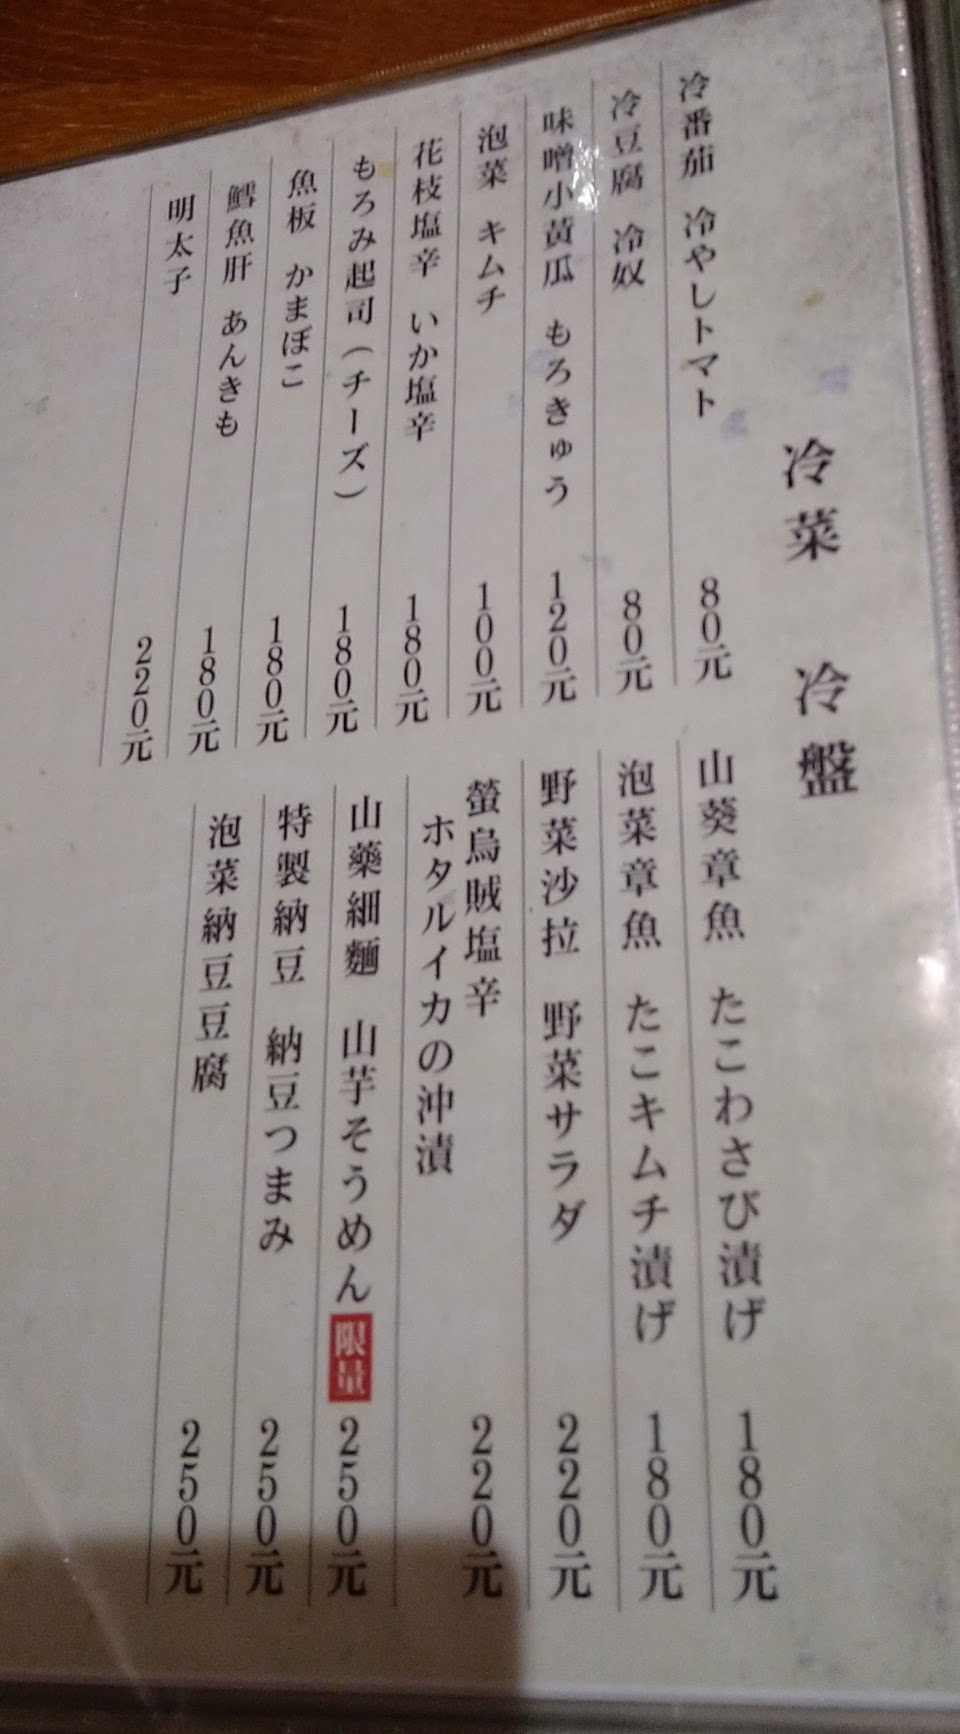 冷菜 冷盤
冷番茄 冷やしトマト 80元
冷豆腐 冷奴 80元
味噌小黃瓜 もろきゅう 120元
泡菜 キムチ 100元
花枝塩辛 いか塩辛 180元
もろみ起司(チーズ) 180元
魚板 かまぼこ 180元
鱈魚肝 あんきも 180元
明太子 220元
山葵章魚 たこわさび漬げ 180元
泡菜章魚 たこキムチ漬げ 180元
野菜沙拉 野菜サラダ 220元
螢烏賊塩辛 220元
ホタルイカの沖漬
山藥細麵 山芋そうめん 限量 250元
特製納豆 納豆つまみ 250元
泡菜納豆豆腐 250元